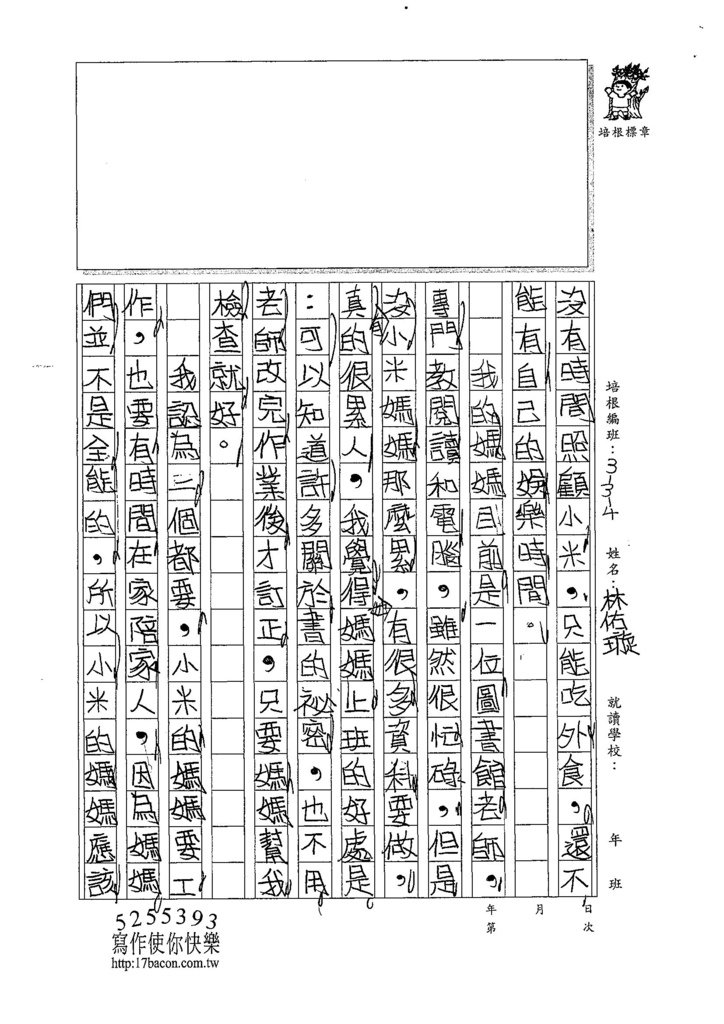 培根標章
培根編班：334
姓名：林佑璇
就讀學校：
年 班
沒有時間照顧小米，只能吃外食，還不
能有自己的娛樂時間。
我的媽媽目前是一位圖書館老師，
專門教閱讀和電腦，雖然很忙碌，但是
沒小米媽媽那麼累，有很多資料要做，
真的很累人，我覺得媽媽上班的好處是
：可以知道許多關於書的祕密，也不用
老師改完作業後才訂正，只要媽媽幫我
檢查就好。
我認為二個都要，小米的媽媽要工
作，也要有時間在家陪家人，因為媽媽
們並不是全能的，所以小米的媽媽應該
年 月 日
第 次
5255393
寫作使你快樂
http:17bacon.com.tw